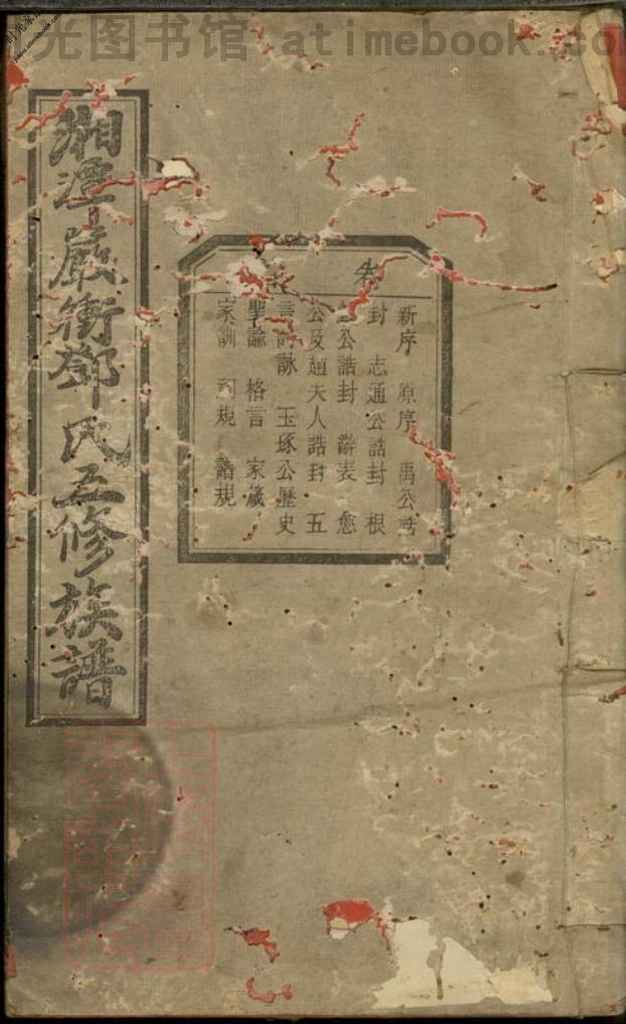 光图书馆 atimebook.co
湘潭嚴衝鄧氏五修族譜
新序 原序 禹公誥
封 志通公誥封 根
公誥封 辭表 愈
公及趙夫人誥封 五
言詩詠 玉琢公歷史
聖諭 格言 家箴
家訓 祠規 諸規